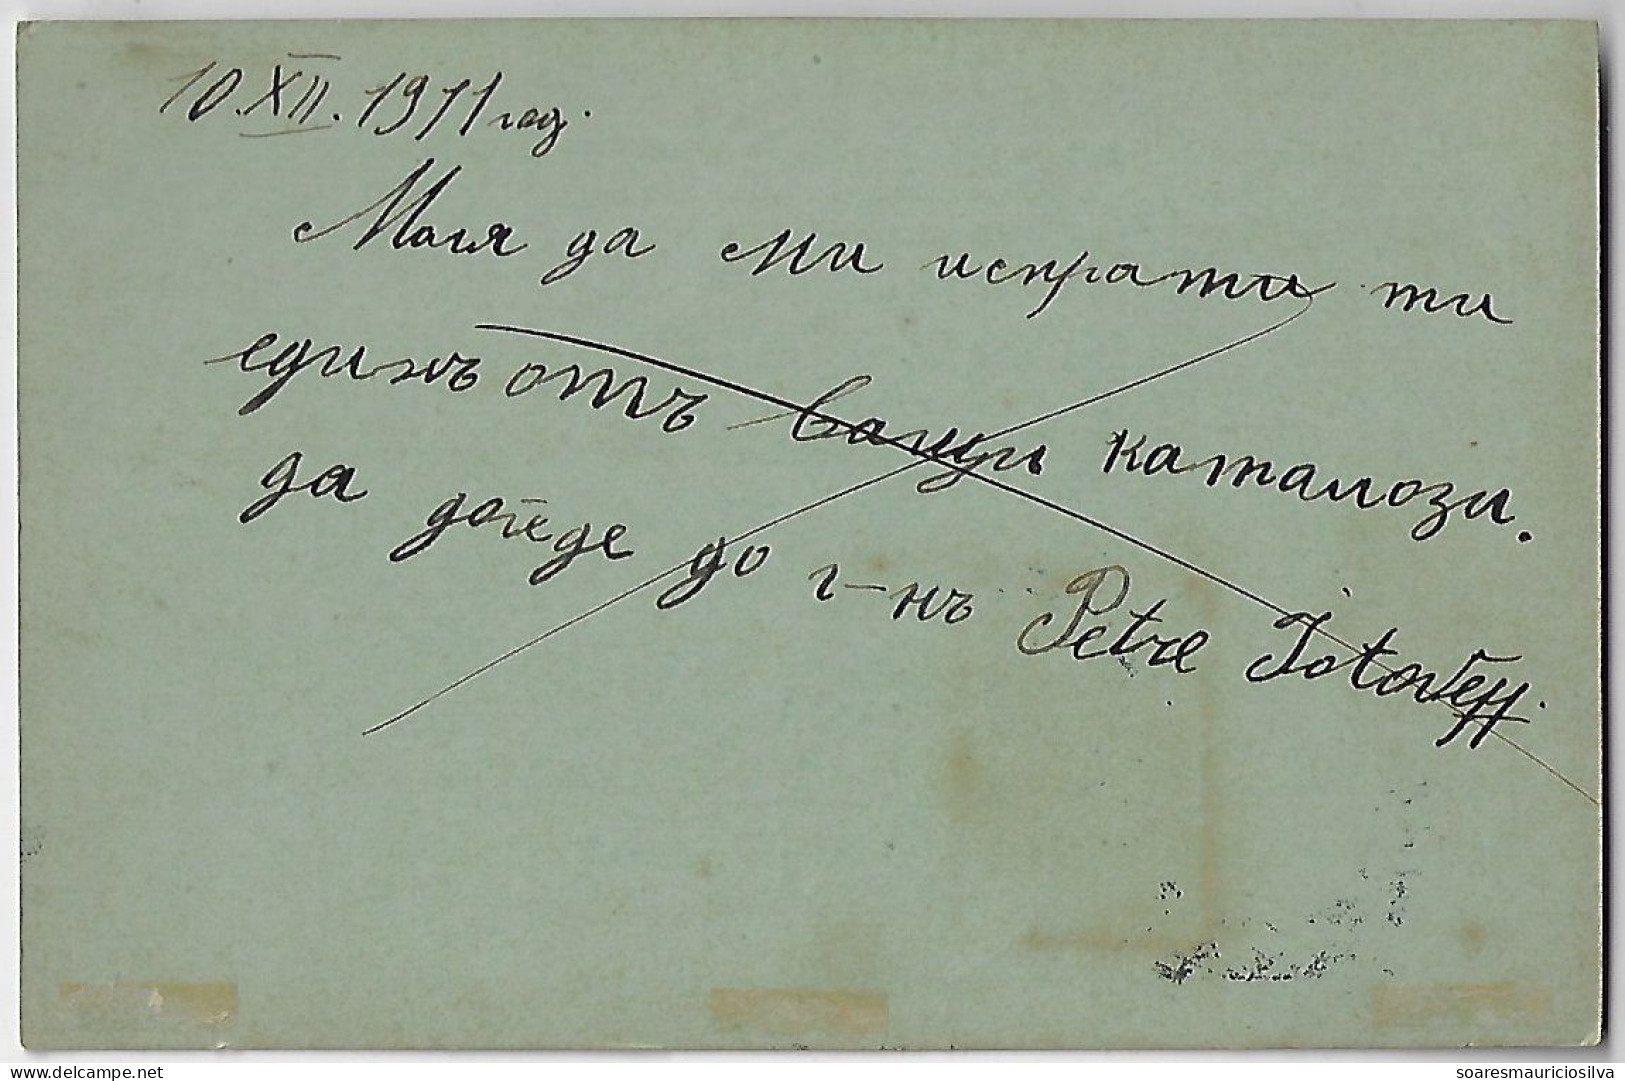 10.XII.1911 год.
Моля да ми испрати ти
единъ отъ каталози.
да дойде до г-нъ Petre Jotoveff.
soaresmauriciosilva